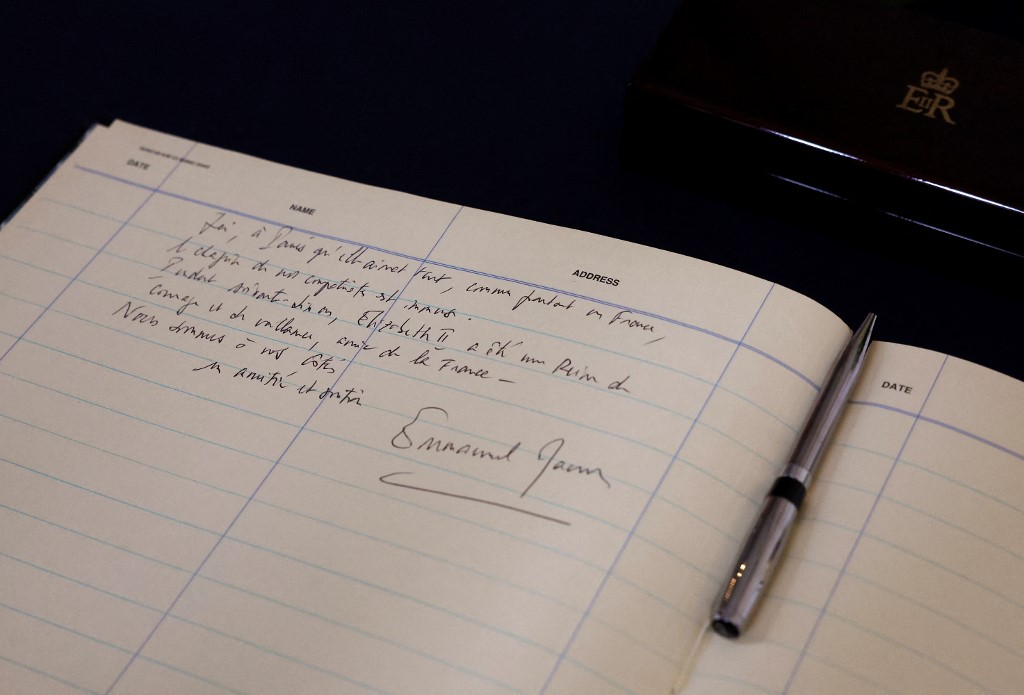 DATE
NAME
ADDRESS
Ici, à Paris qu'elle aimait tant, comme partout en France,
le chagrin de nos compatriotes est immense.
Pendant soixante-dix ans, Elizabeth II a été une Reine de
courage et de vaillance, amie de la France –
Nous sommes à vos côtés
en amitié et
Emmanuel Macron
DATE
EIIR